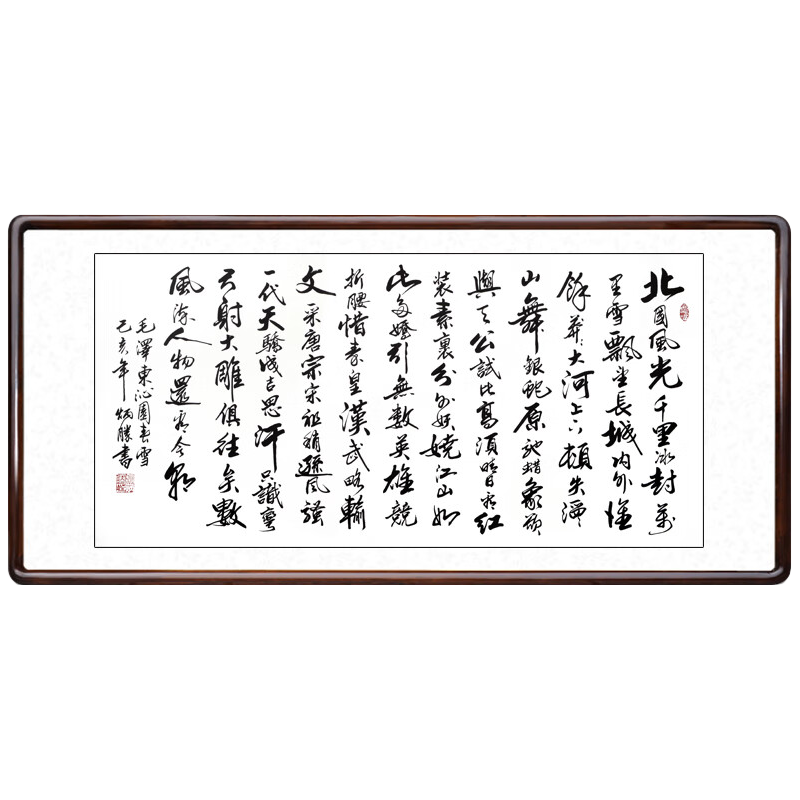 北國風光千里冰封萬
里雪飄望長城內外惟
餘莽莽大河上下頓失滔滔
山舞銀蛇原馳蠟象欲
與天公試比高須晴日看紅
裝素裹分外妖嬈江山如
此多嬌引無數英雄競
折腰惜秦皇漢武略輸
文采唐宗宋祖稍遜風騷
一代天驕成吉思汗只識彎
弓射大雕俱往矣數
風流人物還看今朝
毛澤東沁園春雪
己亥年炳勝書